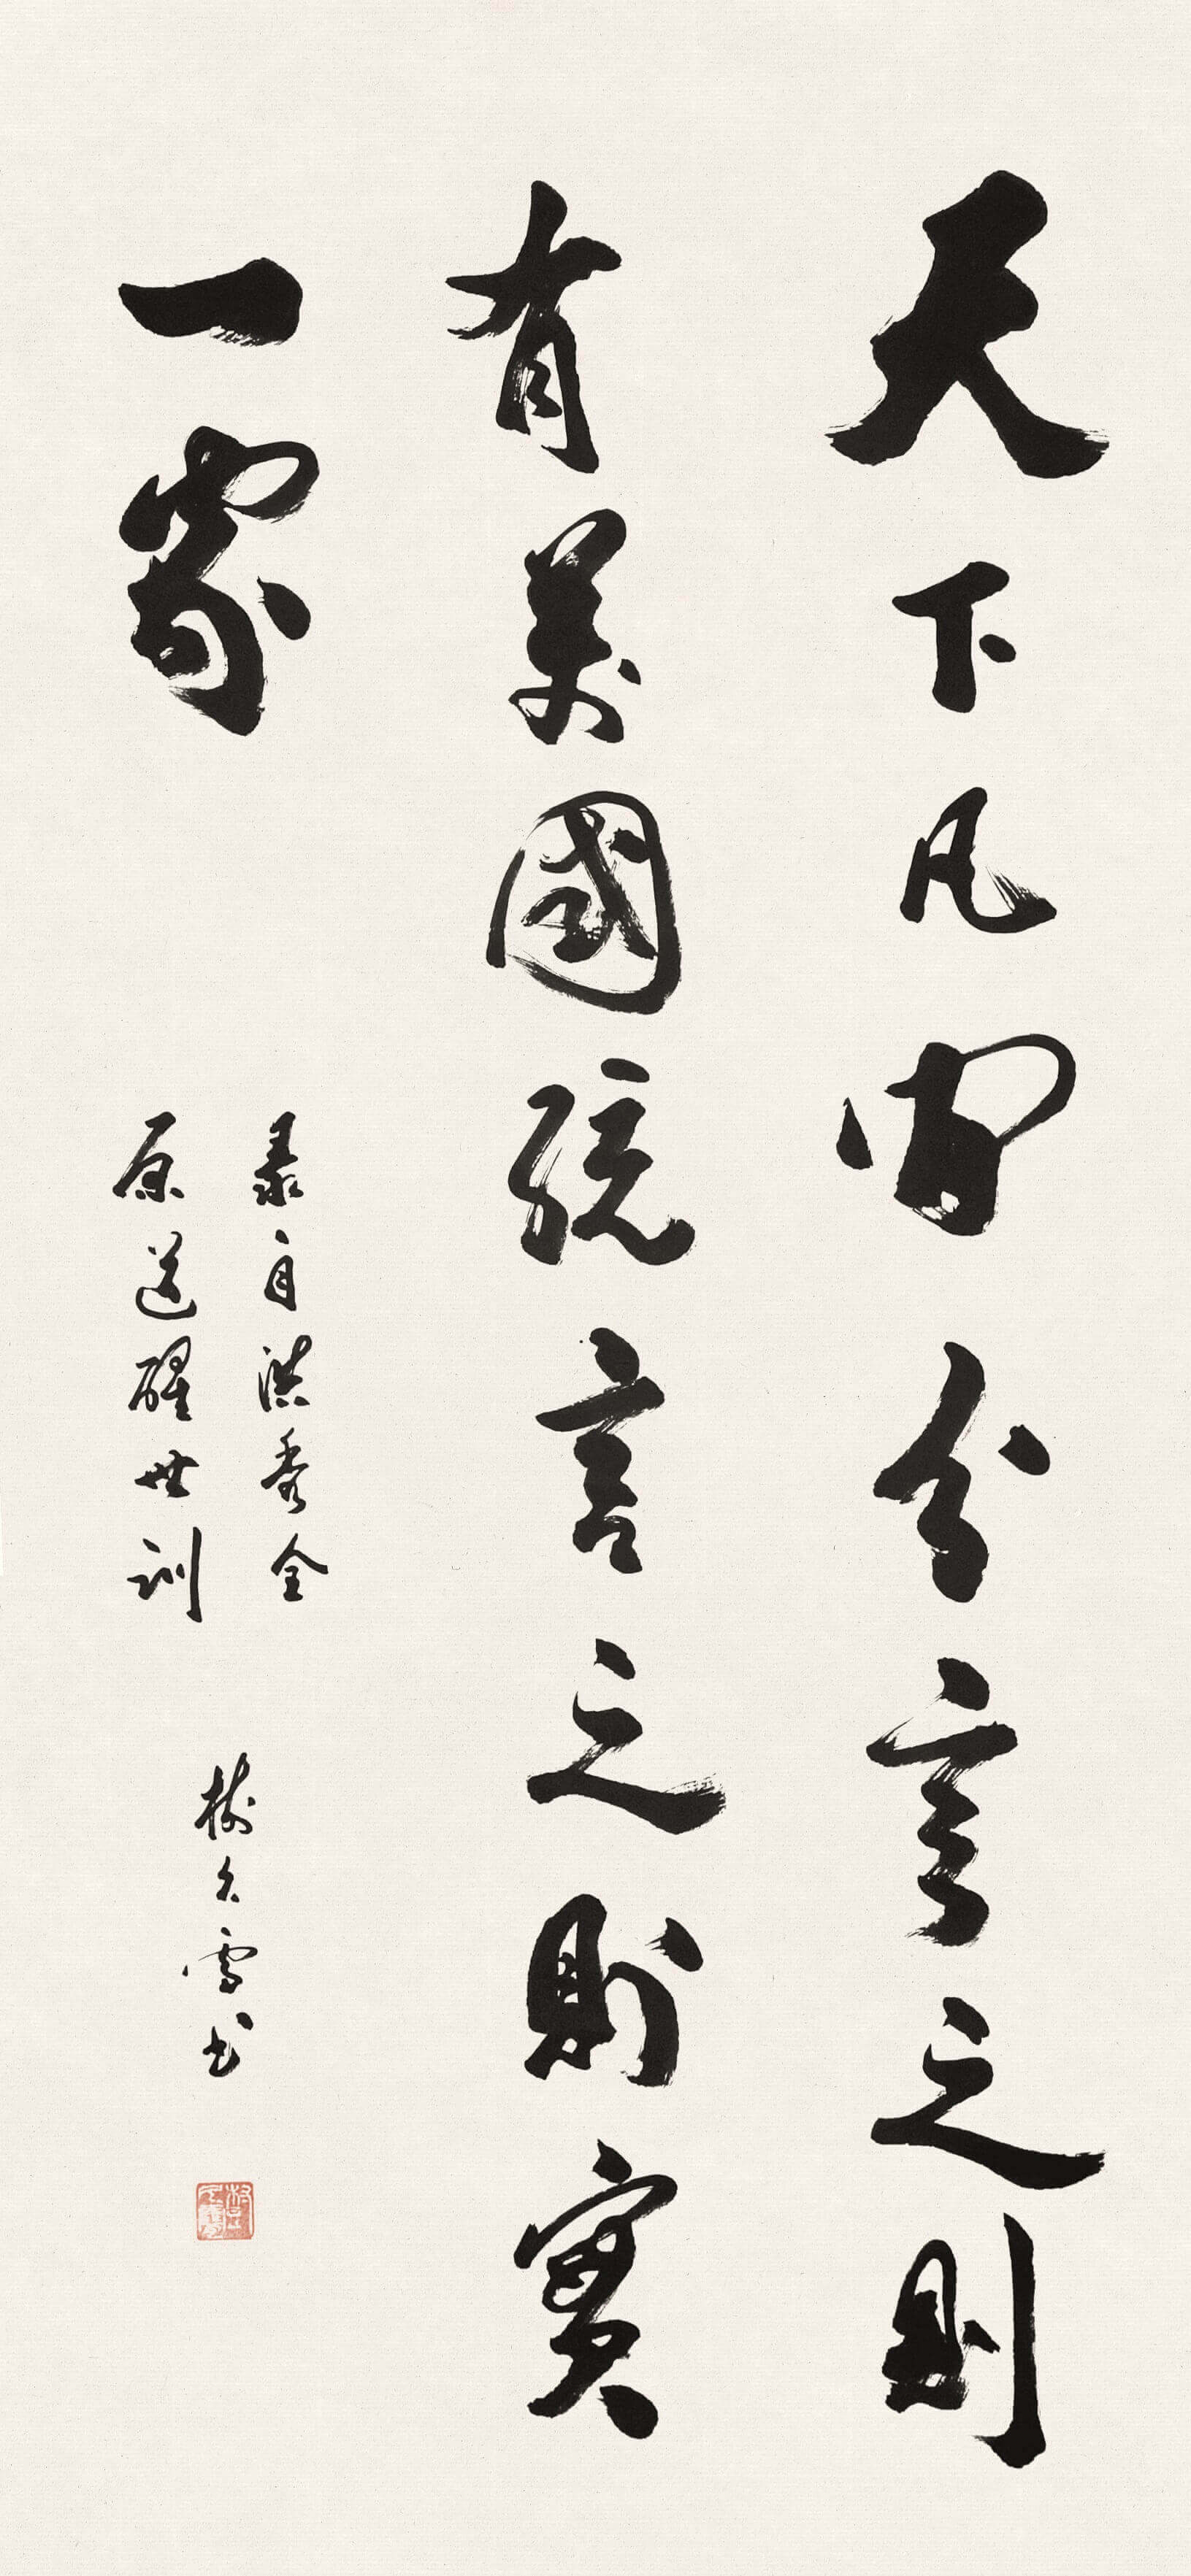 天下凡間分言之則
有萬國統言之則實
一家
录自洪秀全
原道醒世訓
雪书